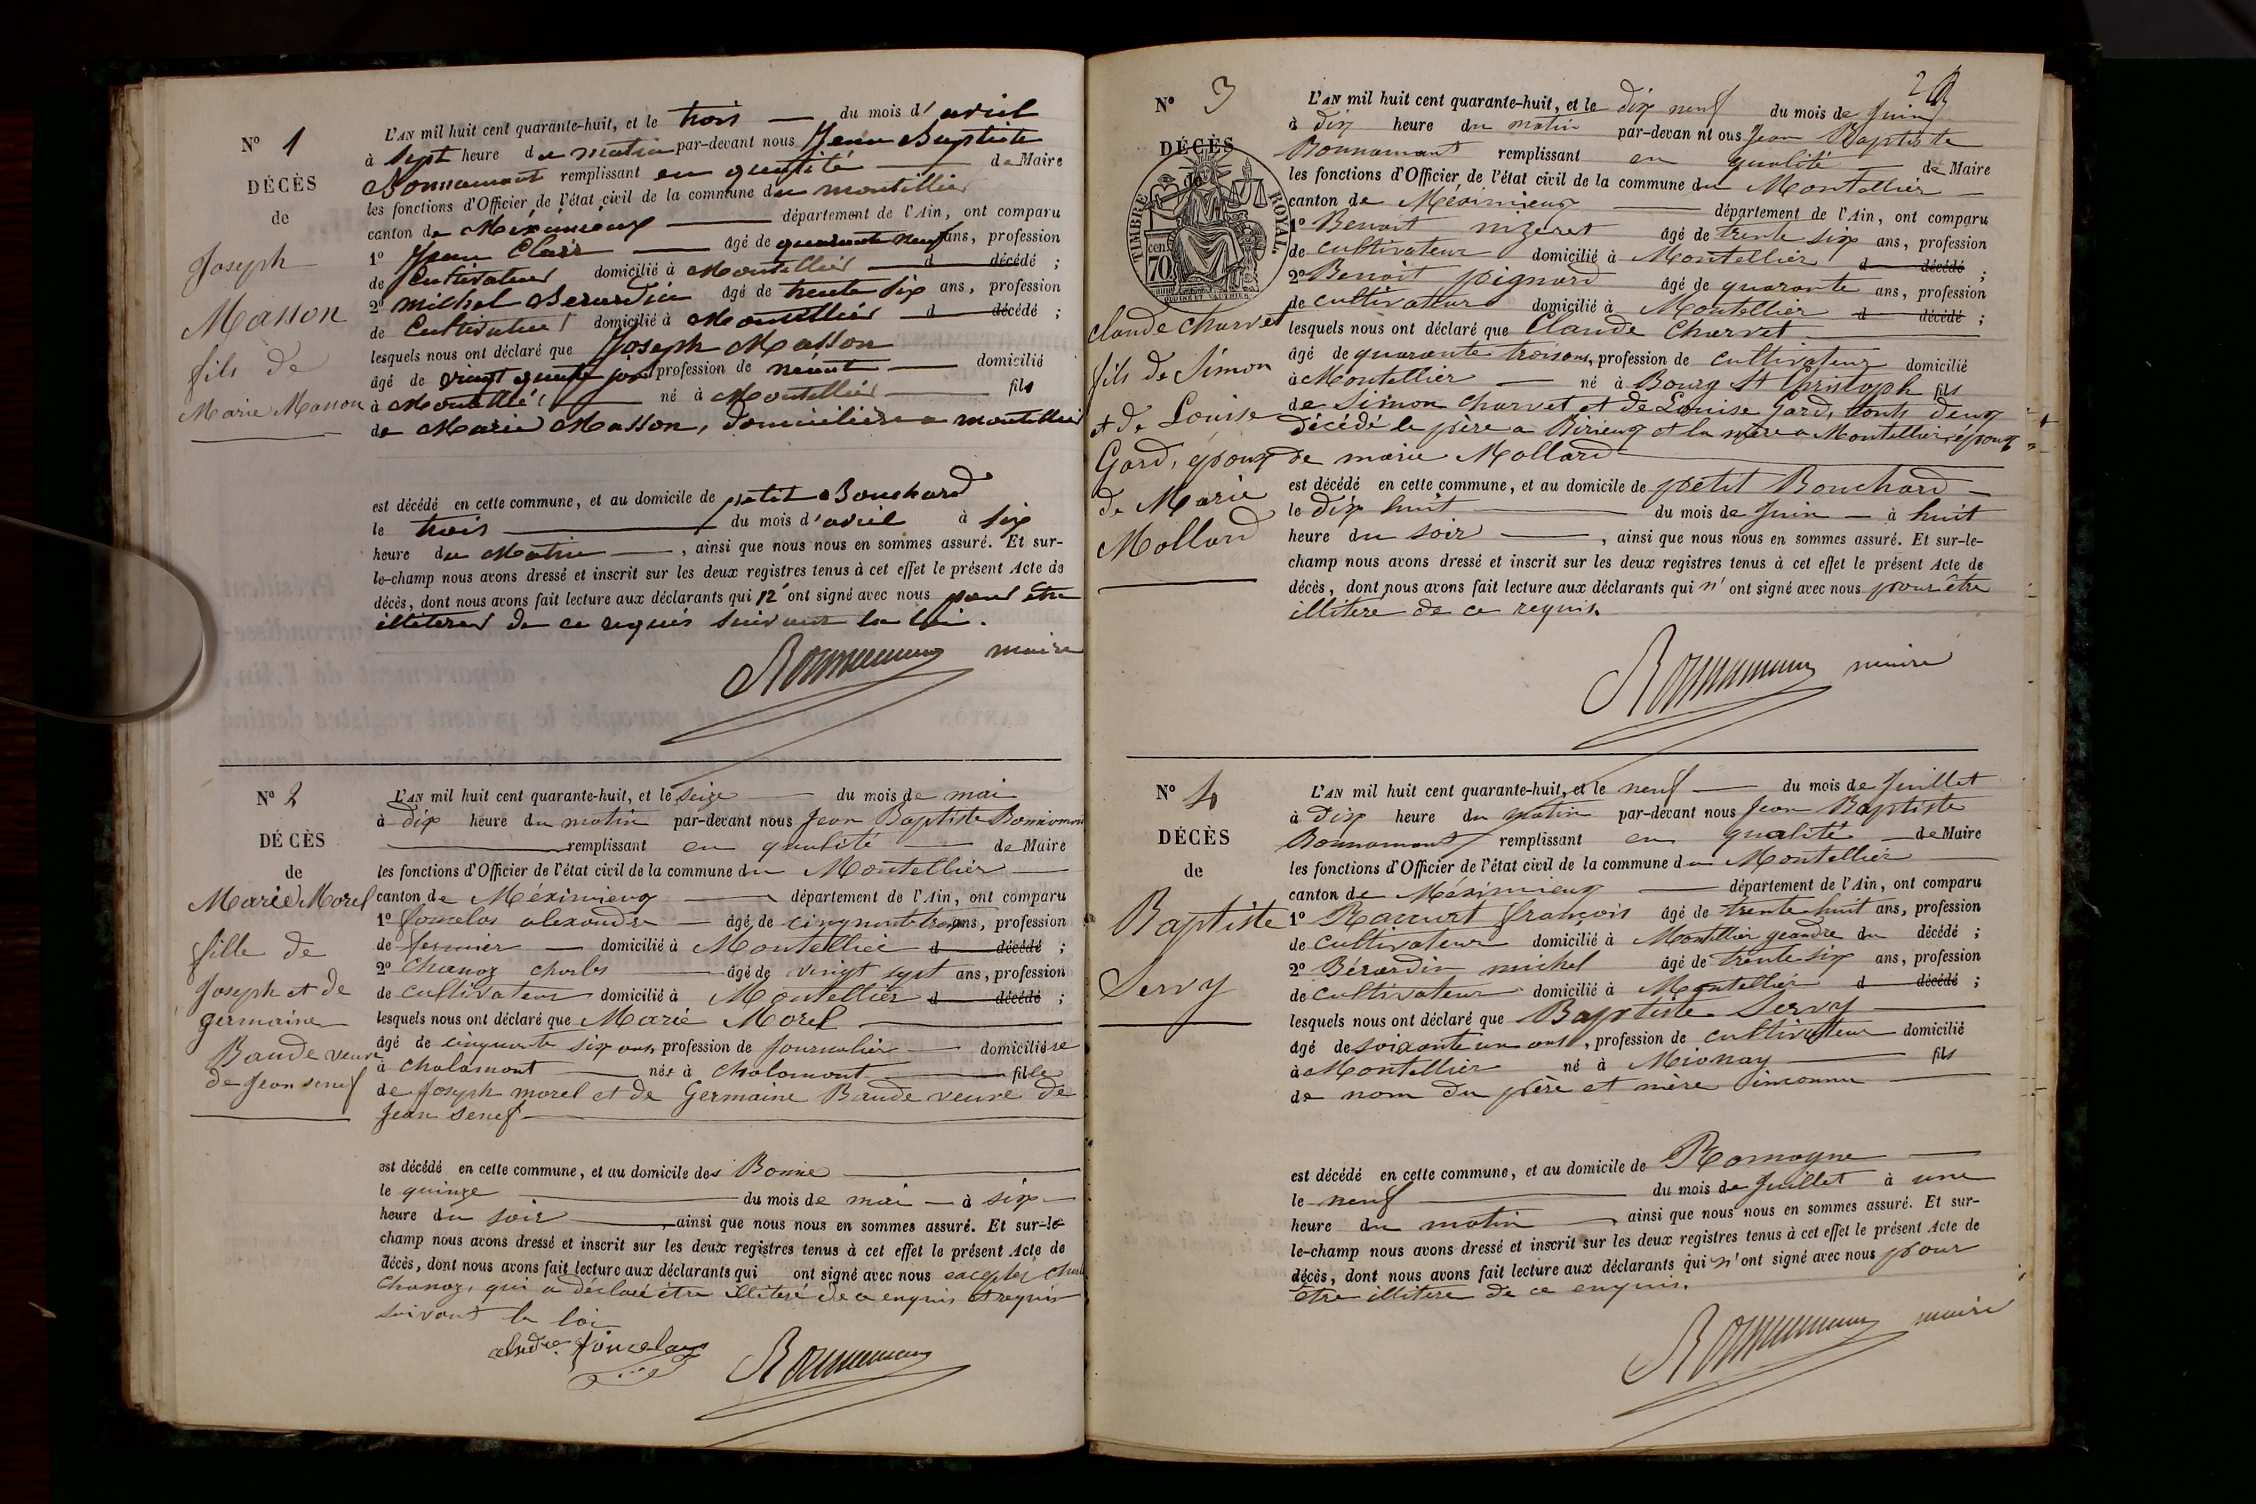 N° 1
DÉCÈS
de
Joseph
Masson
fils de
Marie Masson
L'AN mil huit cent quarante-huit, et le trois du mois d'avril
à sept heure du matin par-devant nous Jean Baptiste
Bonnamant remplissant en qualité de Maire
les fonctions d'Officier de l'état civil de la commune du montellier
canton de Méximieux département de l'Ain, ont comparu
1° Jean Clair âgé de quarante neuf ans, profession
de Cultivateur domicilié à Montellier d décédé ;
2° michel Berardin âgé de trente six ans, profession
de Cultivateur domicilié à Montellier d décédé ;
lesquels nous ont déclaré que Joseph Masson
âgé de vingt quatre jours profession de néant domicilié
à Montellier né à Montellier fils
de Marie Masson, domicilière a montellier
est décédé en cette commune, et au domicile de petit Bouchard
le trois du mois d'avril à six
heure du Matin, ainsi que nous nous en sommes assuré. Et sur-
le-champ nous avons dressé et inscrit sur les deux registres tenus à cet effet le présent Acte de
décès, dont nous avons fait lecture aux déclarants qui n'ont signé avec nous pour être
illiteres de ce requis suivant la loi.
Bonnamant maire
N° 2
DÉCÈS
de
Marie Morel
fille de
Joseph et de
germaine
Baude veuve
de Jean senef
L'AN mil huit cent quarante-huit, et le seize du mois de mai
à dix heure du matin par-devant nous Jean Baptiste Bonnamant
remplissant en qualité de Maire
les fonctions d'Officier de l'état civil de la commune du Montellier
canton de Méximieux département de l'Ain, ont comparu
1° Joncelas alexandre âgé de cinquante trois ans, profession
de fermier domicilié à Montellier d décédé ;
2° Chanoz charles âgé de vingt sept ans, profession
de cultivateur domicilié à Montellier d décédé ;
lesquels nous ont déclaré que Marie Morel
âgé de cinquante six ans profession de Journalière domicilière
à Chalamont née à Chalamont fille
de Joseph morel et de Germaine Baude veuve de
Jean senef
est décédé en cette commune, et au domicile des Bonne
le quinze du mois de mai à six
heure du soir ainsi que nous nous en sommes assuré. Et sur-le-
champ nous avons dressé et inscrit sur les deux registres tenus à cet effet le présent Acte de
décès, dont nous avons fait lecture aux déclarants qui ont signé avec nous excepter
Chanoz, qui a déclaré être illiteré de ce enquis et requis
suivant la loi
Joncelas Bonnamant
2
N° 3
DÉCÈS
TIMBRE ROYAL.
70 cen
claude charvet
fils de Simon
et de Louise
Gard, époux
de Marie
Mollard
L'AN mil huit cent quarante-huit, et le dix neuf du mois de Juin
à dix heure du matin par-devan nt ous Jean Baptiste
Bonnamant remplissant en qualité de Maire
les fonctions d'Officier de l'état civil de la commune du Montellier
canton de Méximieux département de l'Ain, ont comparu
1° Benoit nizeret âgé de trente six ans, profession
de cultivateur domicilié à Montellier d décédé ;
2° Benoit pignard âgé de quarante ans, profession
de cultivateur domicilié à Montellier d décédé ;
lesquels nous ont déclaré que Claude Charvet
âgé de quarante trois ans, profession de cultivateur domicilié
à Montellier né à Bourg St Christoph fils
de Simon Charvet et de Louise Gard, touts deux
décédé le père a Birieux et la mère a Montellier, époux
de marie Mollard
est décédé en cette commune, et au domicile de petit Bouchard
le dix huit du mois de Juin à huit
heure du soir, ainsi que nous nous en sommes assuré. Et sur-le-
champ nous avons dressé et inscrit sur les deux registres tenus à cet effet le présent Acte de
décès, dont nous avons fait lecture aux déclarants qui n'ont signé avec nous pour être
illitere de ce requis.
Bonnamant maire
N° 4
DÉCÈS
de
Baptiste
Servy
L'AN mil huit cent quarante-huit, et le neuf du mois de Juillet
à dix heure du matin par-devant nous Jean Baptiste
Bonnamant remplissant en qualité de Maire
les fonctions d'Officier de l'état civil de la commune du Montellier
canton de Méximieux département de l'Ain, ont comparu
1° Raccurt françois âgé de trente huit ans, profession
de cultivateur domicilié à Montellier geandre du décédé ;
2° Bérardin michel âgé de trente six ans, profession
de cultivateur domicilié à Montellier d décédé ;
lesquels nous ont déclaré que Baptiste Servy
âgé de soixante un ans, profession de cultivateur domicilié
à Montellier né à Mionay fils
de nom du père et mère inconnu
est décédé en cette commune, et au domicile de Romagne
le neuf du mois de Juillet à une
heure du matin, ainsi que nous nous en sommes assuré. Et sur-
le-champ nous avons dressé et inscrit sur les deux registres tenus à cet effet le présent Acte de
décès, dont nous avons fait lecture aux déclarants qui n'ont signé avec nous pour
être illitere de ce enquis.
Bonnamant maire